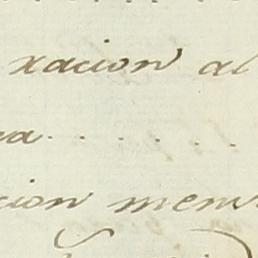 xacion al
na . . . . .
cion mem